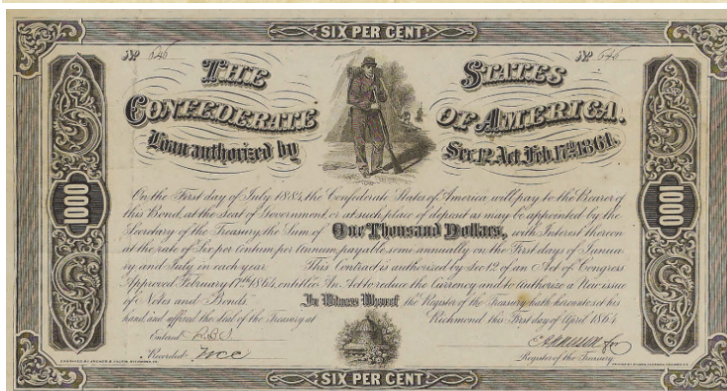 SIX PER CENT
No 646 No 646
THE STATES
CONFEDERATE OF AMERICA.
Loan authorized by Sec. 12, Act Feb. 17th 1864.
On the First day of July 1884, the Confederate States of America will pay to the Bearer of
this Bond, at the seat of Government or at such place of deposit as may be appointed by the
Secretary of the Treasury, the Sum of One Thousand Dollars, with Interest thereon
at the rate of Six per Centum per Annum, payable semi annually on the First days of Janua-
ry and July in each year. This Contract is authorized by Sec 12 of an Act of Congress
Approved February 17th 1864, entitled An Act to reduce the Currency and to authorize a New issue
of Notes and Bonds. In Witness Whereof the Register of the Treasury hath hereunto set his
hand and affixed the Seal of the Treasury at Richmond this First day of April 1864
Entered
Recorded
Register of the Treasury
1000
1000
SIX PER CENT